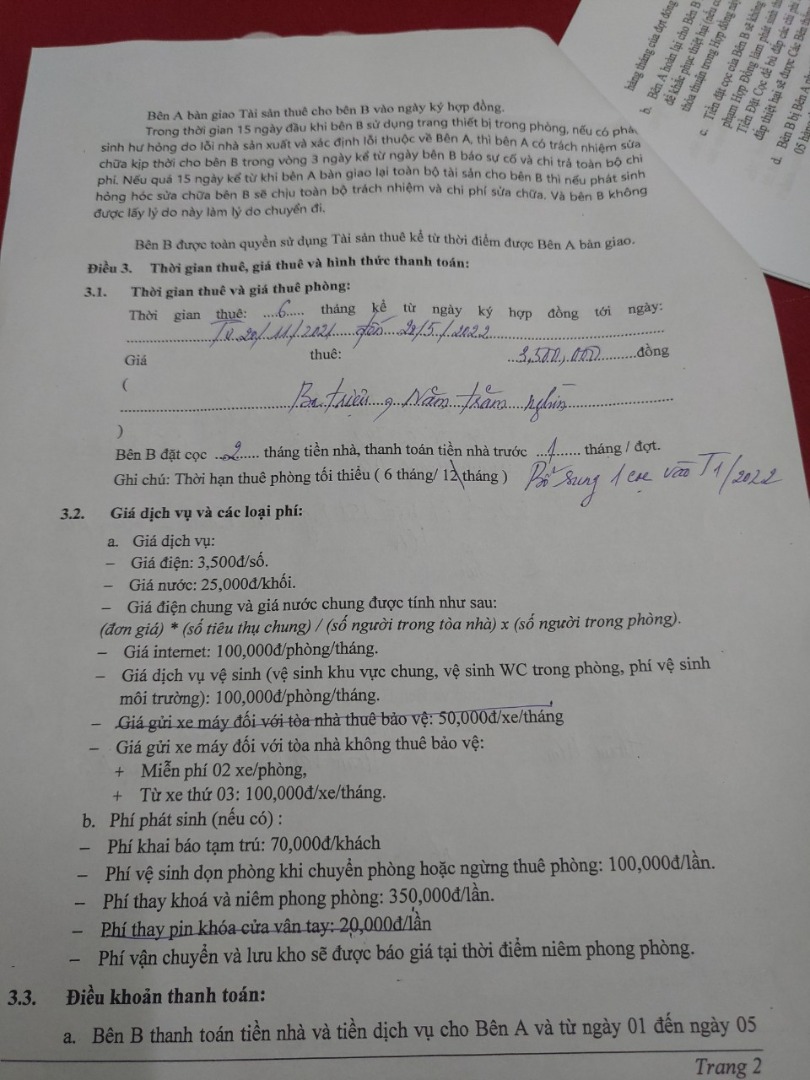 Bên A bàn giao Tài sản thuê cho bên B vào ngày ký hợp đồng.
Trong thời gian 15 ngày đầu khi bên B sử dụng trang thiết bị trong phòng, nếu có phá
sinh hư hỏng do lỗi nhà sản xuất và xác định lỗi thuộc về Bên A, thì bên A có trách nhiệm sửa
chữa kịp thời cho bên B trong vòng 3 ngày kể từ ngày bên B báo sự cố và chi trả toàn bộ chi
phí. Nếu quá 15 ngày kể từ khi bên A bàn giao lại toàn bộ tài sản cho bên B thì nếu phát sinh
hỏng hóc sửa chữa bên B sẽ chịu toàn bộ trách nhiệm và chi phí sửa chữa. Và bên B không
được lấy lý do này làm lý do chuyển đi.
Bên B được toàn quyền sử dụng Tài sản thuê kể từ thời điểm được Bên A bàn giao.
Điều 3. Thời gian thuê, giá thuê và hình thức thanh toán:
3.1. Thời gian thuê và giá thuê phòng:
Thời gian thuê: ....6..... tháng kể từ ngày ký hợp đồng tới ngày:
Từ 20/11/2021 đến 20/5/2022
Giá thuê: 3,500,000 đồng
(
Ba triệu Năm trăm nghìn
)
Bên B đặt cọc ...2...... tháng tiền nhà, thanh toán tiền nhà trước ...1....... tháng / đợt.
Ghi chú: Thời hạn thuê phòng tối thiểu ( 6 tháng/ 12 tháng ) Bổ sung 1 cọc vào T1/2022
3.2. Giá dịch vụ và các loại phí:
a. Giá dịch vụ:
– Giá điện: 3,500đ/số.
– Giá nước: 25,000đ/khối.
– Giá điện chung và giá nước chung được tính như sau:
(đơn giá) * (số tiêu thụ chung) / (số người trong tòa nhà) x (số người trong phòng).
– Giá internet: 100,000đ/phòng/tháng.
– Giá dịch vụ vệ sinh (vệ sinh khu vực chung, vệ sinh WC trong phòng, phí vệ sinh
môi trường): 100,000đ/phòng/tháng.
– Giá gửi xe máy đối với tòa nhà thuê bảo vệ: 50,000đ/xe/tháng
– Giá gửi xe máy đối với tòa nhà không thuê bảo vệ:
+ Miễn phí 02 xe/phòng,
+ Từ xe thứ 03: 100,000đ/xe/tháng.
b. Phí phát sinh (nếu có) :
– Phí khai báo tạm trú: 70,000đ/khách
– Phí vệ sinh dọn phòng khi chuyển phòng hoặc ngừng thuê phòng: 100,000đ/lần.
– Phí thay khoá và niêm phong phòng: 350,000đ/lần.
– Phí thay pin khóa cửa vân tay: 20,000đ/lần
– Phí vận chuyển và lưu kho sẽ được báo giá tại thời điểm niêm phong phòng.
3.3. Điều khoản thanh toán:
a. Bên B thanh toán tiền nhà và tiền dịch vụ cho Bên A và từ ngày 01 đến ngày 05
Trang 2
hàng tháng của đợt đóng
b. Bên A hoàn lại cho Bên B
để khắc phục thiệt hại (nếu c
thỏa thuận trong Hợp đồng này
c. Tiền đặt cọc của Bên B sẽ không
phạm Hợp Đồng làm phát sinh th
Tiền Đặt Cọc để bù đắp các chi phí
đắp thiệt hại sẽ được Các Bên
d. Bên B bị Bên A
05 hàng